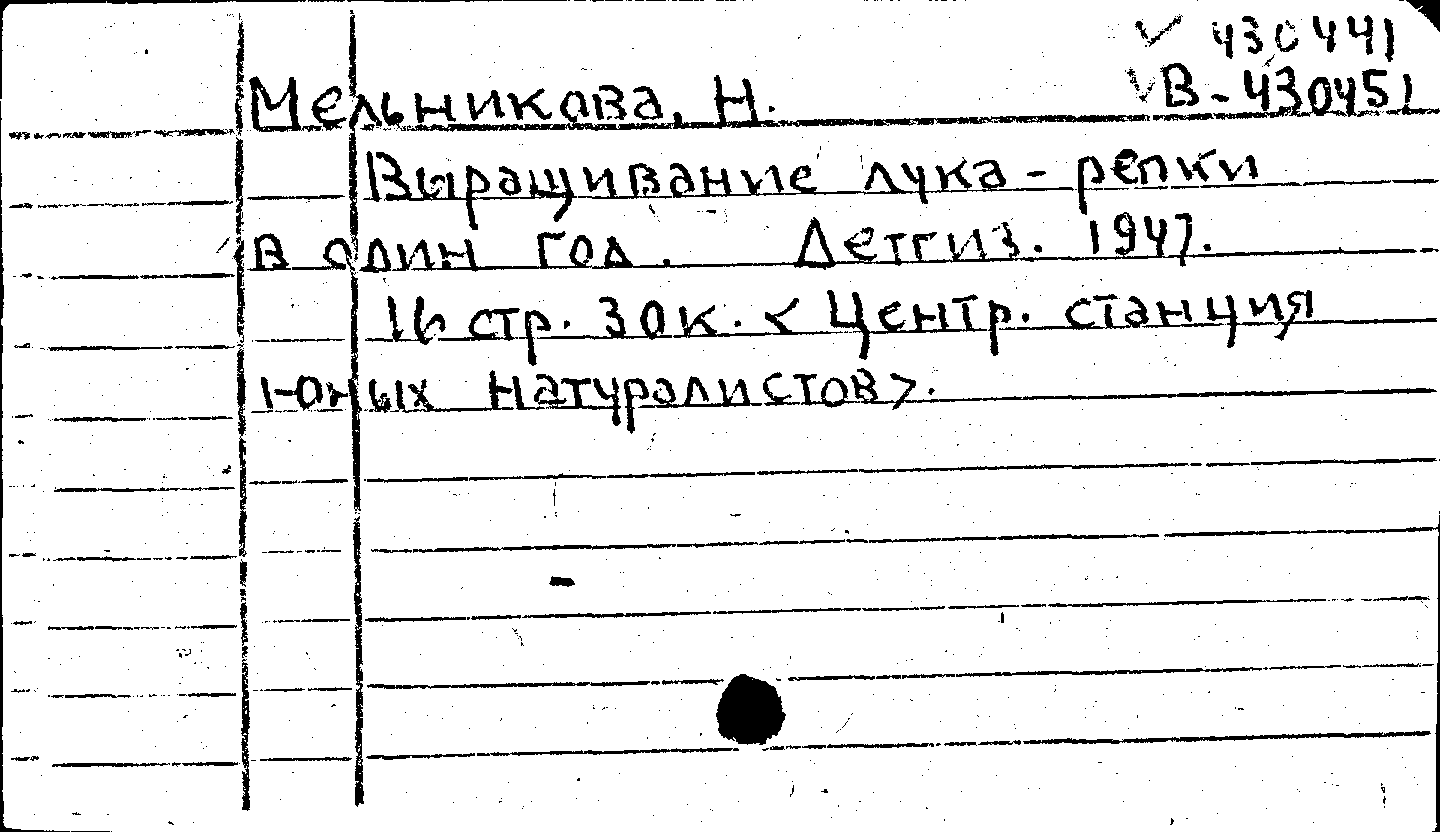 ✓ 430441
Мельникова, Н. ✓В-430451
Выращивание лука-репки
в один год. Детгиз. 1947.
16 стр. 30к. < Центр. станция
юных натуралистов>.